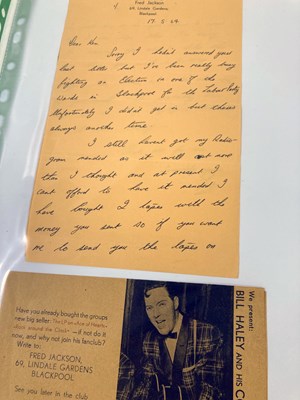 Fred Jackson
69, Lindale Gardens
Blackpool
Dear Ken
Sorry I hadn't answered your
last letter but I've been really busy
fighting an Election in one of the
Wards in Blackpool for the Labour Party
Unfortunately I didn't get in but theres
always another time.
I still havent got my Radio-
gram mended as it will cost more
than I thought and at present I
cant afford to have it mended I
have bought 2 tapes with the
money you sent so if you want
me to send you the tapes on
Have you already bought the groups
new big seller:
—if not do it
now, and why not join his fanclub?
Write to:
FRED JACKSON,
69, LINDALE GARDENS
BLACKPOOL
See you later in the club
We present:
BILL HALEY AND HIS C